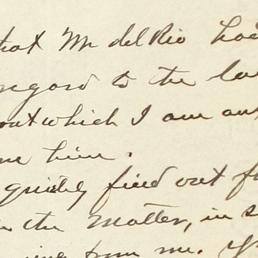 that Mr del Rio had
regard to the la
out which I am an
me him.
quietly find out f
in the matter, in s
from me. Y